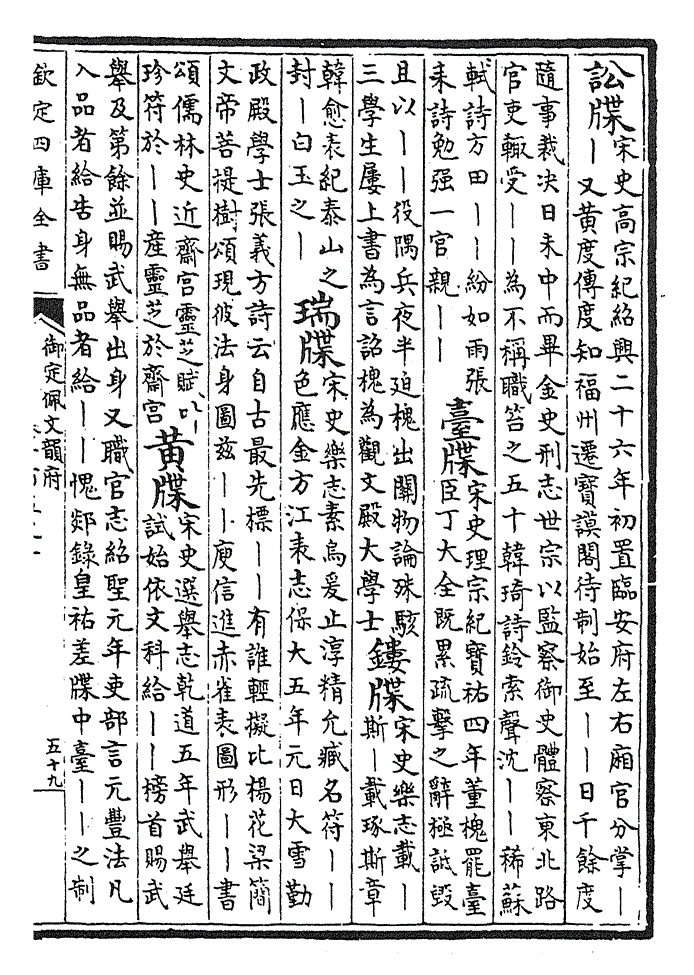 訟牒
宋史高宗紀紹興二十六年初置臨安府左右廂官分掌丨
丨又黃度傳度知福州遷寶謨閣待制始至丨丨日千餘度
隨事裁决日未中而畢金史刑志世宗以監察御史體察東北路
官吏輙受丨丨為不稱職笞之五十韓琦詩鈴索聲沈丨丨稀蘇
軾詩方田丨丨紛如雨張
耒詩勉强一官親丨丨
臺牒
宋史理宗紀寶祐四年董槐罷臺
臣丁大全既累疏擊之辭極詆毀
且以丨丨役隅兵夜半迫槐出關物論殊駭
三學生屢上書為言詔槐為觀文殿大學士
鏤牒
宋史樂志載丨
斯丨載琢斯章
韓愈表紀泰山之
封丨白玉之丨
瑞牒
宋史樂志素烏爰止淳精允臧名符丨丨
色應金方江表志保大五年元日大雪勤
政殿學士張義方詩云自古最先標丨丨有誰輕擬比楊花梁簡
文帝菩提樹頌現彼法身圖兹丨丨庾信進赤雀表圖形丨丨書
頌儒林史近齋宮靈芝賦
珍符於丨丨産靈芝於齋宮
黃牒
宋史選舉志乾道五年武舉廷
試始依文科給丨丨榜首賜武
舉及第餘並賜武舉出身又職官志紹聖元年吏部言元豐法凡
入品者給告身無品者給丨丨愧郯錄皇祐差牒中臺丨丨之制
欽定四庫全書
御定佩文韻府
五十九